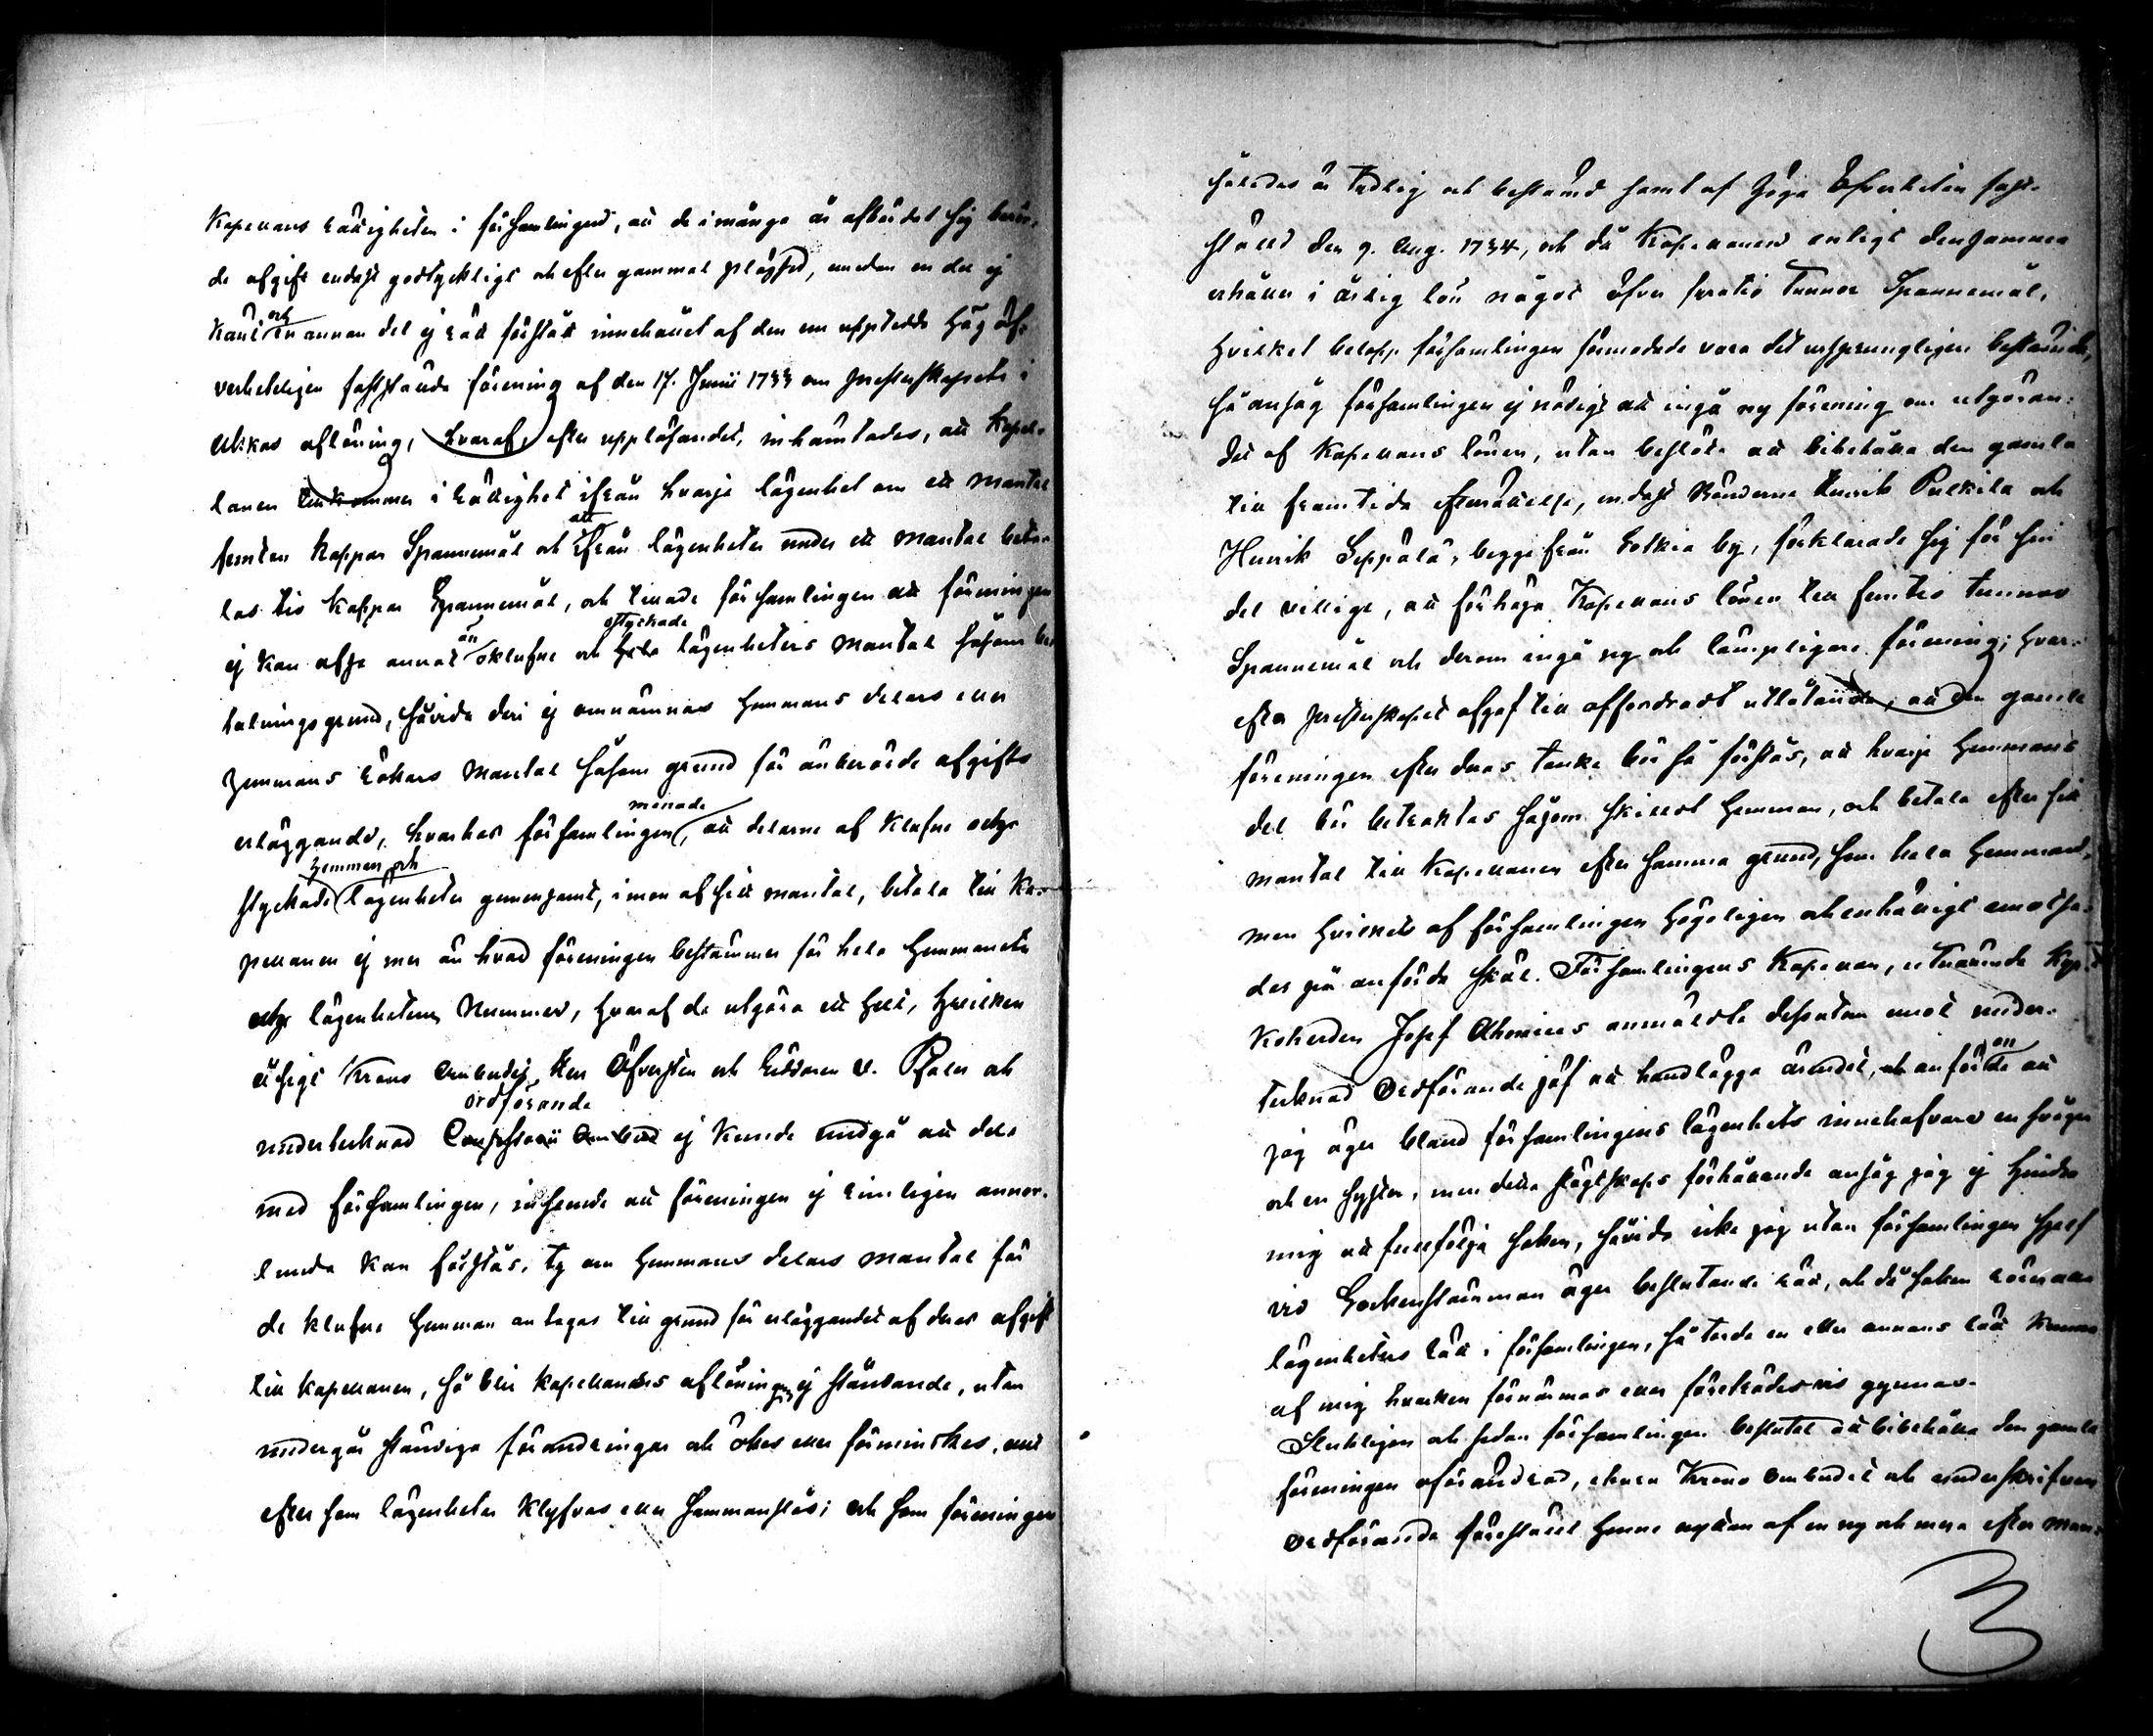 Kapellans rättigheten i församlingen, att de i många år afbördat sig berör-
de afgift endast godtyckligt och efter gammal plägsed, emedan en del ej
känt och en annan del ej rätt förstått innehållet af den nu upptedde Hög Öf-
verheteligen fastställde förening af den 17. Junii 1733 om presterskapets i
Ulikas aflöning, hvaraf, efter uppläsandet, inhämtades, att Kapel-
lanen tillkommer i rättighet ifrån hvarje lägenhet om ett mantal
femton kappar Spannemål och att ifrån lägenheter under ett mantal beta-
las tio kappar Spannemål, och trodde församlingen att föreningen
ej kan afse annat än oklufne och ostyckade lägenheters mantal såsom be-
talningsgrund, såvida deri ej omnämnas Hemmans delars eller
Hemmans rökars mantal såsom grund för anberörde afgifts
erläggande, hvarhos församlingen menade, att delarne af klufne och
styckade Hemman och lägenheter gemensamt, i mon af sitt mantal, betala till Ka-
pellanen ej mer än hvad föreningen bestämmer för hela Hemmanets
och lägenhetens Nummer, hvaraf de utgöra ett helt, hvilken
åsigt Krono Ombudet, Herr Öfversten och Riddaren v. Pfaler och
undertecknad ordförande ej kunde undgå att dela
med församlingen, inseende att föreningen ej rimligen annor-
lunda kan förstås, ty om Hemmans delars mantal för
de klufne Hemman antages till grund för erläggandet af deras afgift
till kapellanen, så blir kapellanens aflöning ej stående, utan
undergår ständiga förändringar och ökes eller förminskes, allt
efter som lägenheter klyfvas eller sammanslås; och som föreningen
således är tydlig och bestämd samt af Höga Öfverheten fast-
ställd den 9. Aug. 1734, och då Kapellanen enligt densamma
erhåller i årlig lön något öfver fyratio Tunnor Spannemål,
hvilket belopp församlingen förmodade vara det ursprungligen bestämda,
så ansåg församlingen ej nödigt att ingå ny förening om utgöran-
det af Kapellans lönen, utan beslöto att bibehålla den gamla
till framtida efterrättelse, endast Bönderne Henrik Pulkila och
Henrik Seppälä, begge från Gotkia by, förklarade sig för sin
del villige, att förhöja Kapellans lönen till femtio tunnor
Spannemål och derom ingå ny och lämpligare förening; hvar-
efter presterskapet afgaf till affordradt utlåtande, att den gamla
föreningen efter deras tanke bör så förstås, att hvarje Hemmans
del bör betraktas såsom skildt Hemman, och betala efter sitt
mantal till Kapellanen efter samma grund, som hela Hemmanet,
men hvilket af församlingen högeligen och enhälligt emotsa-
des på anförda skäl. Församlingens Kapellan, utnämnde Kyr-
koherden Josef Ahonius anmälde dessutom emot under-
tecknad Ordförande jäf att handlägga ärendet, och anförde att
jag äger bland församlingens lägenhets innehafvare en svåger
och en syster, men detta slägtskaps förhållande ansåg jag ej hindra
mig att fullfölja saken, såvida icke jag utan församlingen sjelf
vid Sockenstämman äger beslutande rätt, och då saken rörer alla
lägenheters rätt i församlingen, så torde en eller annans rätt kunna
af mig hvarken förnärmas eller företrädesvis gynnas.
Slutligen och sedan församlingen beslutat att bibehålla den gamla
föreningen oförändrad, ehuru Krono Ombudet och underskrifven
Ordförande föreställt henne nyttan af en ny och mera efter man-
3